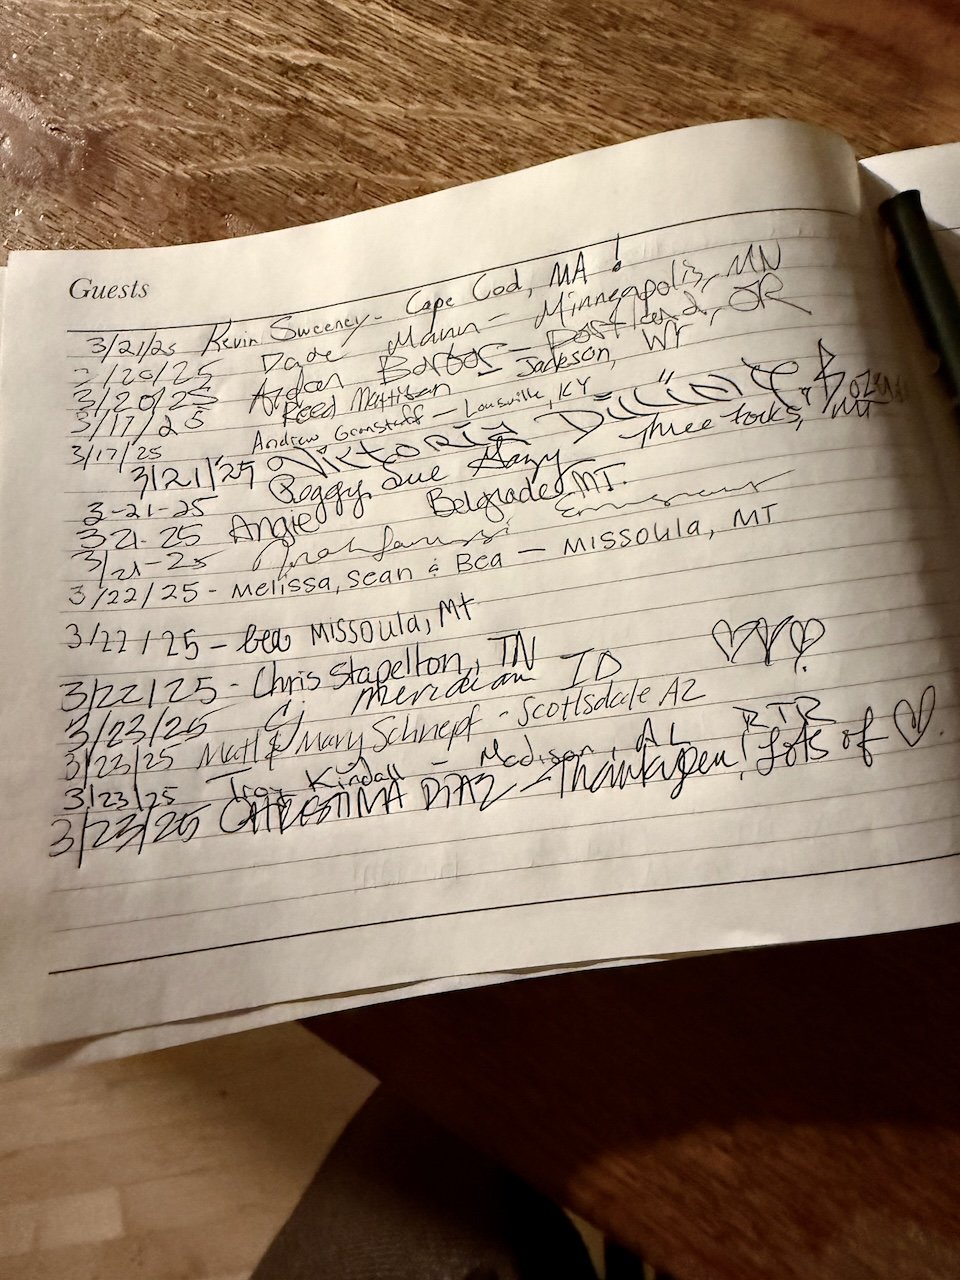 Guests
3/21/25 Kevin Sweeney - Cape Cod, MA !
3/20/25 Dane Mann - Minneapolis, MN
3/20/25 Aidan Barbos - Portland, OR
3/17/25 Reed Mattison - Jackson, WY
3/17/25 Andrew Grimstaff - Louisville, KY
3/21/25 Viktoria Dillione Bozeman MT
3-21-25 Peggy Sue Three forks,
3-21-25 Angie Belgrade, MT.
3/21-25
3/22/25 - Melissa, Sean & Bea - Missoula, MT
3/22/25 - bea Missoula, Mt
3/22/25 - Chris Stapelton, TN
3/23/25 Cj Meridian ID
3/23/25 Matt & Mary Schnepf - Scottsdale AZ
3/23/25 Troy Kindall - Madison, AL RTR
3/23/25 DIAZ - Thank you! Lots of